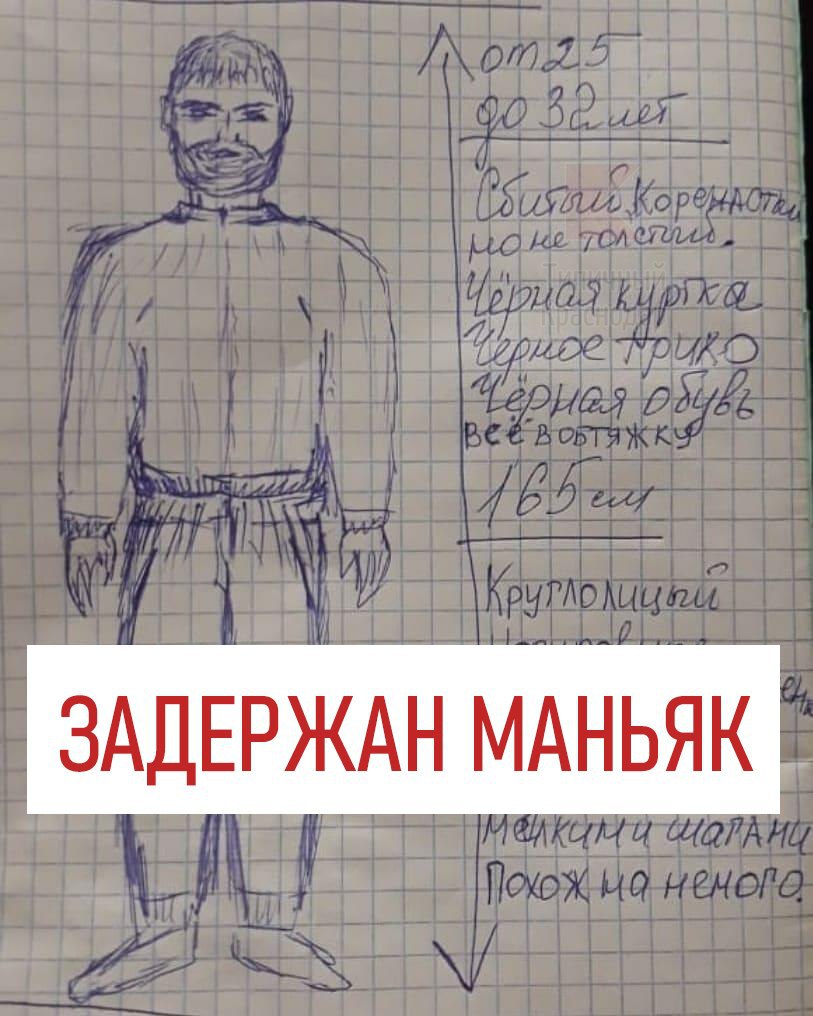 от 25
до 32 лет
Сбитый, коренастый
но не толстый.
Типичный
Краснодар
Чёрная куртка
Черное трико
Чёрная обувь
всё в обтяжку
165 см
Круглолицый
ЗАДЕРЖАН МАНЬЯК
мелкими шагами
Похож на немого.